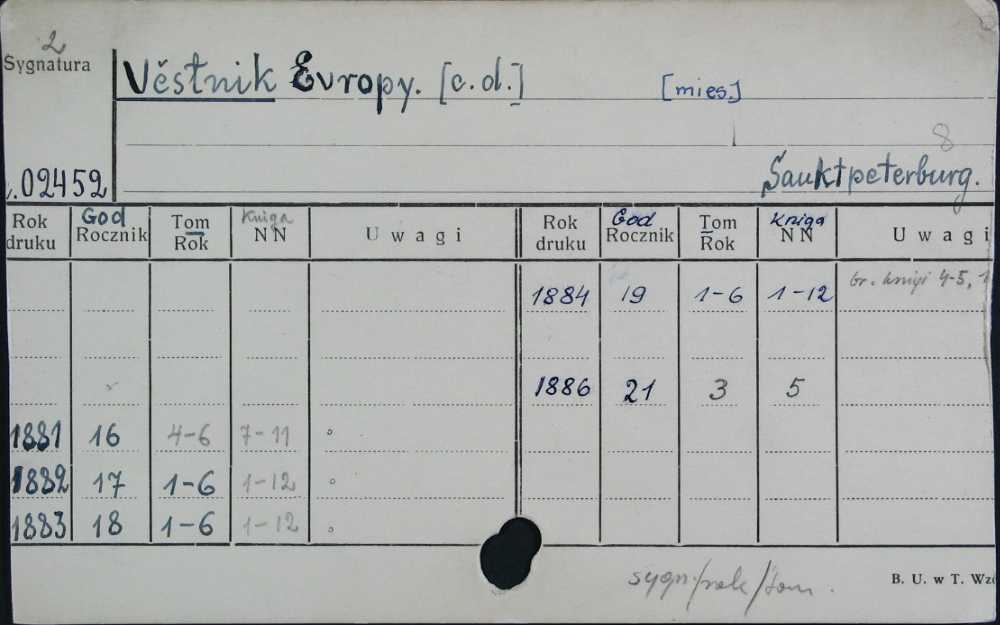 2
Sygnatura
Věstnik Evropy. [c.d.] [mies.]
8
.02452
Sanktpeterburg.
Rok druku God Rocznik Tom Rok Kniga NN Uwagi Rok druku God Rocznik Tom Rok Kniga NN Uwagi
1884 19 1-6 1-12 br. knigi 4-5,
1886 21 3 5
1881 16 4-6 7-11
1882 17 1-6 1-12
1883 18 1-6 1-12
sygn/rok/tom.
B. U. w T.